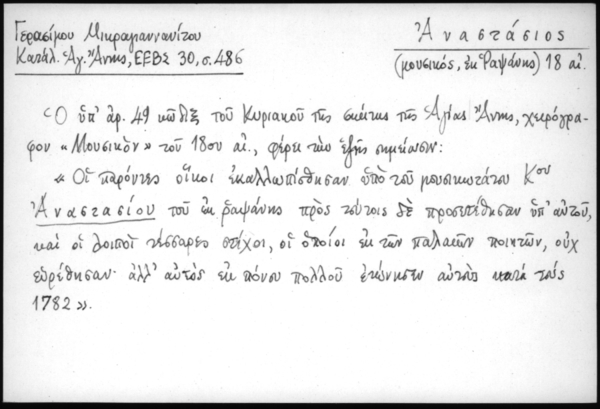 Γερασίμου Μικραγιαννανίτου
Κατάλ. Ἁγ. Ἄννης, ΕΕΒΣ 30, σ. 486
Ἀναστάσιος
(μουσικός, ἐκ Ραψάνης) 18 αἰ.
Ὁ ὑπ' ἀρ. 49 κῶδιξ τοῦ Κυριακοῦ τῆς σκήτης τῆς Ἁγίας Ἄννης, χειρόγρα-
φον « Μουσικὸν » τοῦ 18ου αἰ., φέρει τὴν ἑξῆς σημείωσιν:
« Οἱ παρόντες οἶκοι ἐκαλλωπίσθησαν ὑπὸ τοῦ μουσικωτάτου Κου
Ἀναστασίου τοῦ ἐκ ῥαψάνης πρὸς τούτοις δὲ προσετέθησαν ὑπ' αὐτοῦ,
καὶ οἱ λοιποὶ τέσσαρες στίχοι, οἱ ὁποίοι ἐκ τῶν παλαιῶν ποιητῶν, οὐχ
εὑρέθησαν· ἀλλ' αὐτὸς ἐκ πόνου πολλοῦ ἐτόνησεν αὐτοὺς κατὰ τοὺς
1782 ».